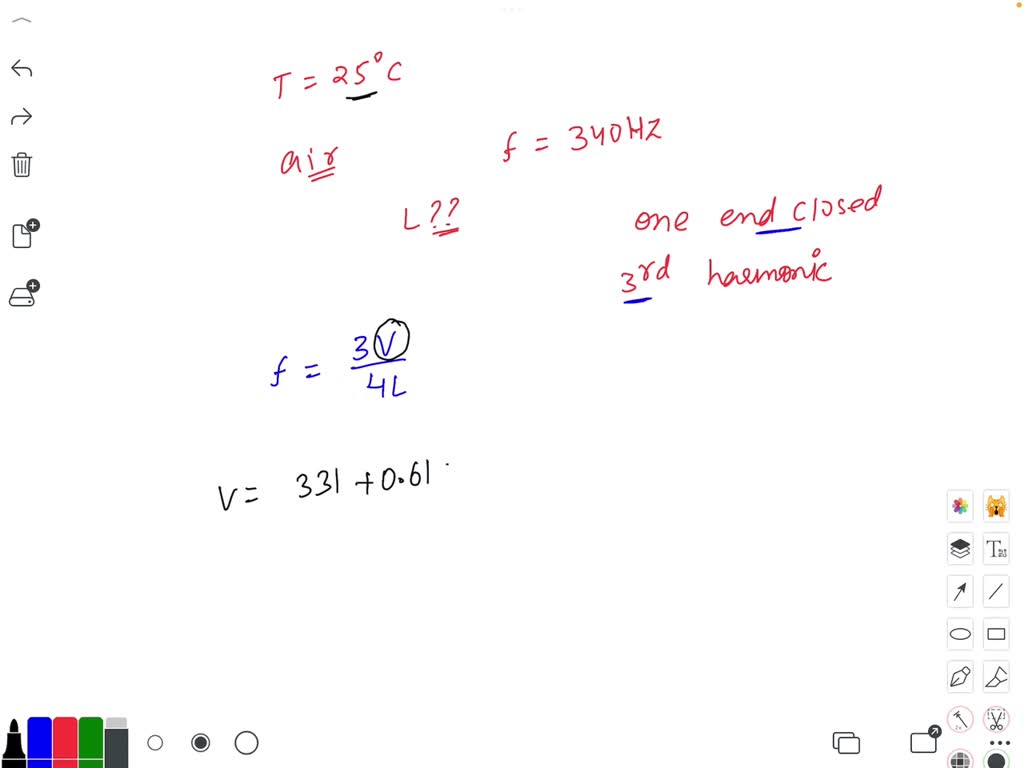 T = 25°C
air
f = 340HZ
L ??
one end closed
3rd harmonic
f = 3V
4L
V = 331 + 0.61 .